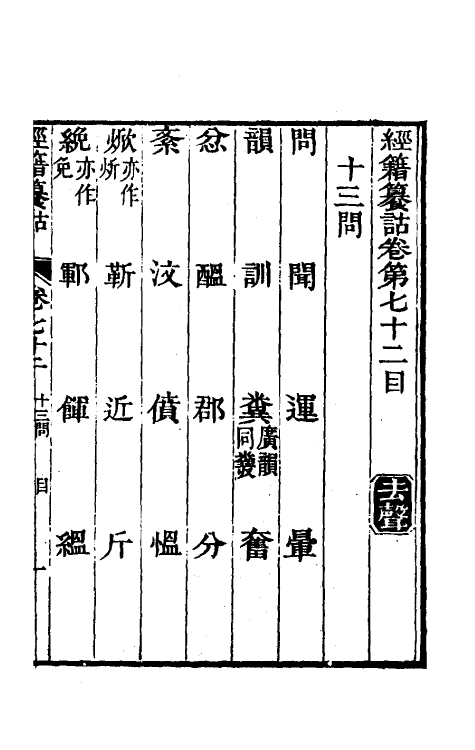 經籍籑詁卷第七十二目 去聲
十三問
問 聞 運 暈
韻 訓 糞廣韻同𡊄 奮
忿 醞 郡 分
紊 汶 僨 慍
焮亦作炘 靳 近 斤
絻亦作免 鄆 餫 緼
經籍籑詁 卷七十二 十三問 目 一